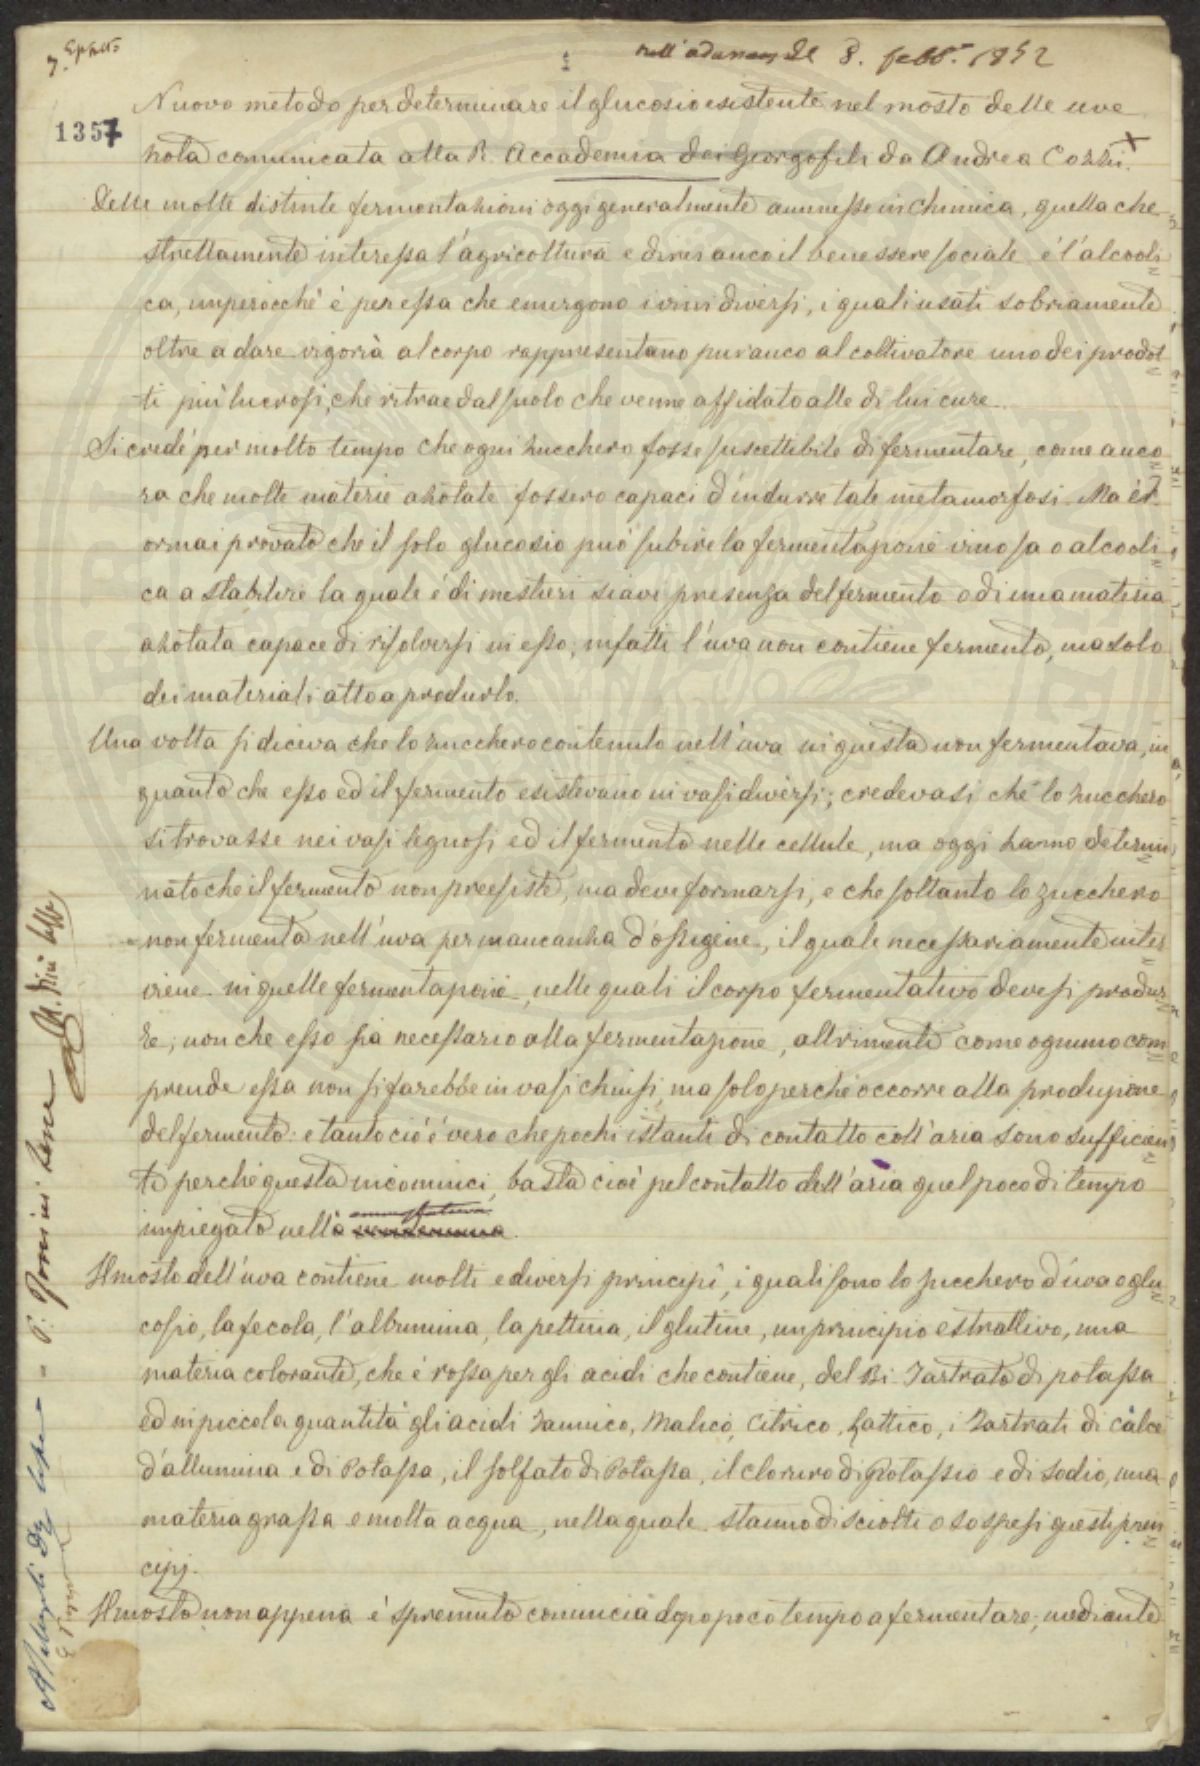 nell'adunanza del 8. febb.º 1852
1357
Nuovo metodo per determinare il glucosio esistente nel mosto delle uve
Nota comunicata alla R. Accademia dei Georgofili da Andrea Cozzi.
Delle molte distinte fermentazioni oggi generalmente ammesse in chimica, quella che
strettamente interessa l'agricoltura e direi anco il benessere sociale è l'alcooli
ca, imperocchè è per essa che emergono i vini diversi, i quali usati sobriamente
oltre a dare vigoria al corpo rappresentano pur anco al coltivatore uno dei prodot
ti più lucrosi, che ritrae dal suolo che venne affidato alle di lui cure.
Si credè per molto tempo che ogni zucchero fosse suscettibile di fermentare, come anco
ra che molte materie azotate fossero capaci d'indurre tale metamorfosi. Ma è
ormai provato che il solo glucosio può subire la fermentazione vinosa o alcooli
ca a stabilire la quale è di mestieri siavi presenza del fermento o di una materia
azotata capace di risolversi in esso; infatti l'uva non contiene fermento, ma solo
dei materiali atto a produrlo.
Una volta si diceva che lo zucchero contenuto nell'uva in questa non fermentava, in
quanto che esso ed il fermento esistevano in vasi diversi; credevasi che lo zucchero
si trovasse nei vasi legnosi ed il fermento nelle cellule, ma oggi hanno determi
nato che il fermento non preesiste, ma deve formarsi, e che soltanto lo zucchero
non fermenta nell'uva per mancanza d'ossigene, il quale necessariamente inter
viene in quelle fermentazioni, nelle quali il corpo fermentativo devesi produr
re; non che esso sia necessario alla fermentazione, altrimenti come ognuno com
prende essa non si farebbe in vasi chiusi, ma solo perchè occorre alla produzione
del fermento: e tanto ciò è vero che pochi istanti di contatto coll'aria sono sufficien
ti perchè questa incominci, basta cioè pel contatto dell'aria quel poco di tempo
impiegato nella vendemmia.
Il mosto dell'uva contiene molti e diversi principi, i quali sono lo zucchero d'uva o glu
cosio, la fecola, l'albumina, la pettina, il glutine, un principio estrattivo, una
materia colorante, che è rossa per gli acidi che contiene, del Bi Tartrato di potassa
ed in piccola quantità gli acidi Tannico, Malico, Citrico, Lattico, i Tartrati di calce
d'allumina e di Potassa, il solfato di Potassa, il cloruro di Potassio e di Sodio, una
materia grassa e molta acqua, nella quale stanno disciolti o sospesi questi prin
cipj.
Il mosto non appena è spremuto comincia dopo poco tempo a fermentare; mediante